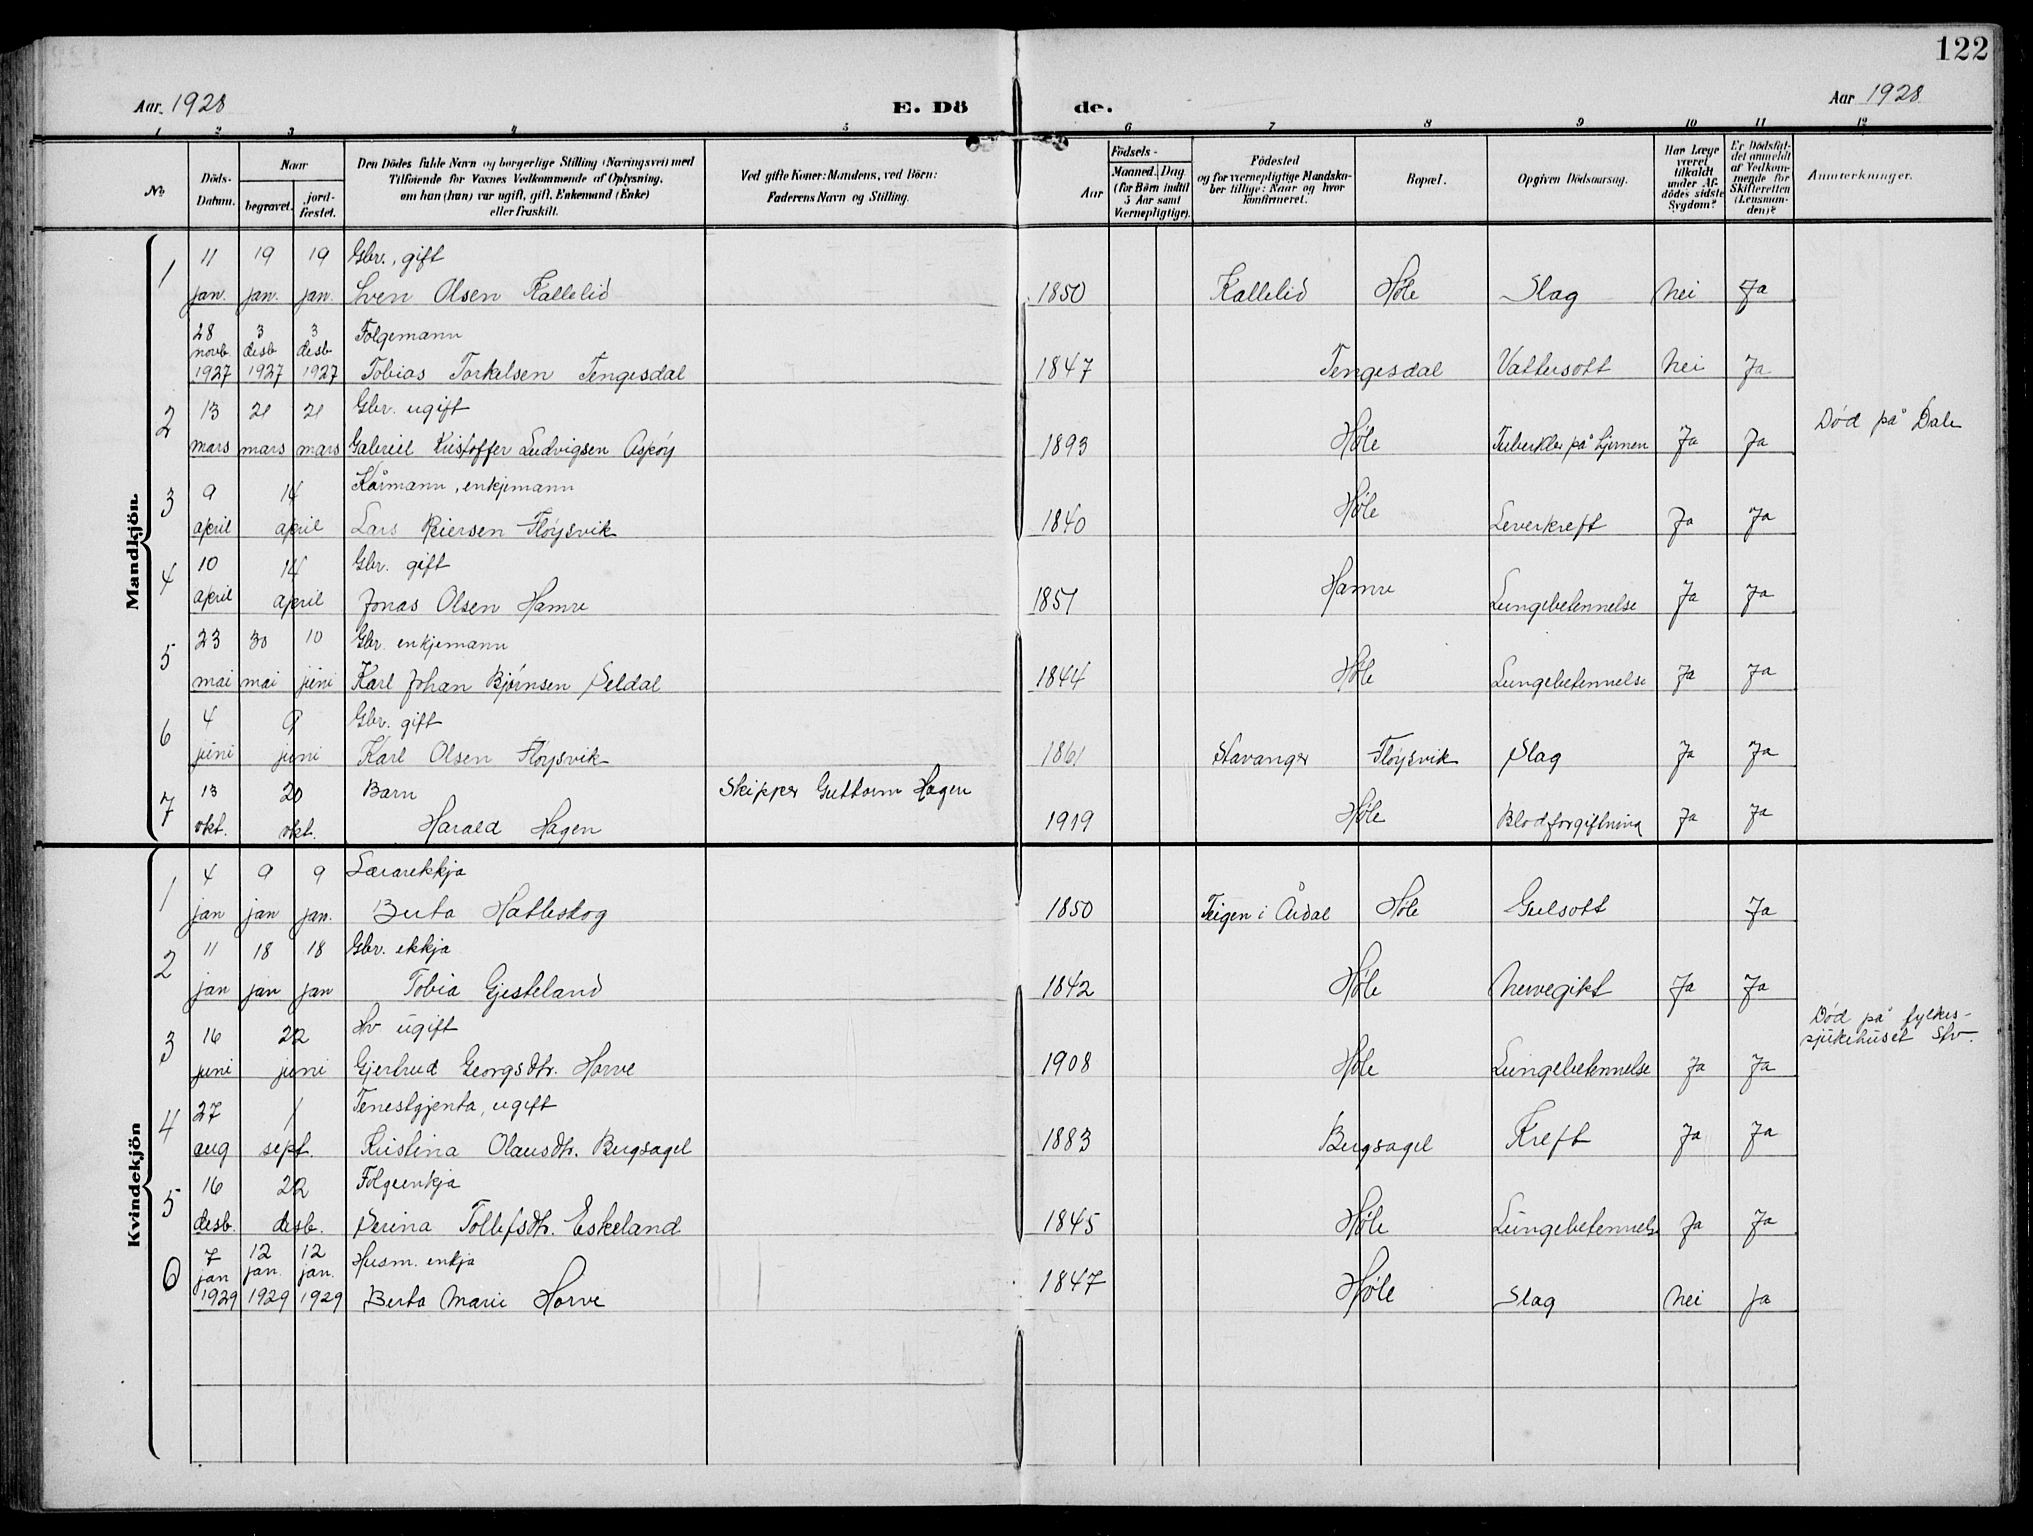 122
Aar 1928 E. Dö de. Aar 1928
1 2 3 4 5 6 7 8 9 10 11 12
No. Döds-Datum. Naar begravet. jordfæstet. Den Dödes fulde Navn og borgerlige Stilling (Næringsvei) med Tilföiende for Voxnes Vedkommende af Oplysning, om han (hun) var ugift, gift, Enkemand (Enke) eller fraskilt. Ved gifte Koner: Mandens, ved Börn: Faderens Navn og Stilling. Födsels- Aar Maaned. Dag. (for Börn indtil 5 Aar samt Værnepligtige). Födested og for værnepligtige Mandskaber tillige: Naar og hvor konfirmeret. Bopæl. Opgiven Dödsaarsag. Har Læge været tilkaldt under Afdödes sidste Sygdom? Er Dödsfaldet anmeldt af Vedkommende for Skifteretten (Lensmanden)? Anmerkninger.
Mandkjön
1 11 jan. 19 jan. 19 jan. Gbr., gift
Sven Olsen Kallelid 1850 Kallelid Høle Slag Nei Ja
28 novb. 1927 3 desb. 1927 3 desb. 1927 Folgemann
Tobias Torkelsen Tengesdal 1847 Tengesdal Vattersott Nei Ja
2 13 mars 21 mars 21 mars Gbr. ugift
Gabriel Kristoffer Ludvigsen Aspøy 1893 Høle Tuberkler på hjernen Ja Ja Død på Dale
3 9 april 14 april Kårmann, enkjemann
Lars Reiersen Fløysvik 1840 Høle Leverkreft Ja Ja
4 10 april 14 april Gbr. gift
Jonas Olsen Hamre 1851 Hamre Lungebetennelse Ja Ja
5 23 mai 30 mai 10 juni Gbr. enkjemann
Karl Johan Bjørnsen Seldal 1844 Høle Lungebetennelse Ja Ja
6 4 juni 9 juni Gbr. gift
Karl Olsen Fløysvik 1861 Stavanger Fløysvik Slag Ja Ja
7 13 okt. 20 okt. Barn Skipper Guttorm Hagen
Harald Hagen 1919 Høle Blodforgiftning Ja Ja
Kvindekjön
1 4 jan 9 jan 9 jan. Lærarekkja
Berta Hatleskog 1850 Teigen i Årdal Høle Gulsott Ja
2 11 jan 18 jan 18 jan Gbr. ekkja
Tobia Gjesteland 1842 Høle Nervegikt Ja Ja
3 16 juni 22 juni Hv ugift
Gjertrud Georgsdtr. Horve 1908 Høle Lungebetennelse Ja Ja Død på fylkes-
sjukehuset Stv.
4 27 aug 1 sept. Tenestgjenta, ugift
Kristina Olausdtr. Bergsagel 1883 Bergsagel Kreft Ja Ja
5 16 desb. 22 desb. Folgeenkja
Serina Tollefsdtr. Eskeland 1845 Høle Lungebetennelse Ja Ja
6 7 jan 1929 12 jan. 1929 12 jan. 1929 Husm. enkja
Berta Marie Horve 1847 Høle Slag Nei Ja